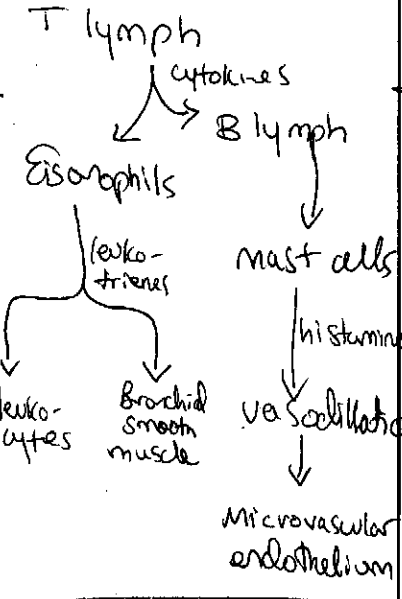 T lymph
cytokines
B lymph
Eisonophils
leuko-
trienes
mast cells
histamine
leuko-
cytes
Bronchial
smooth
muscle
vasodillatio
Microvascular
endothelium